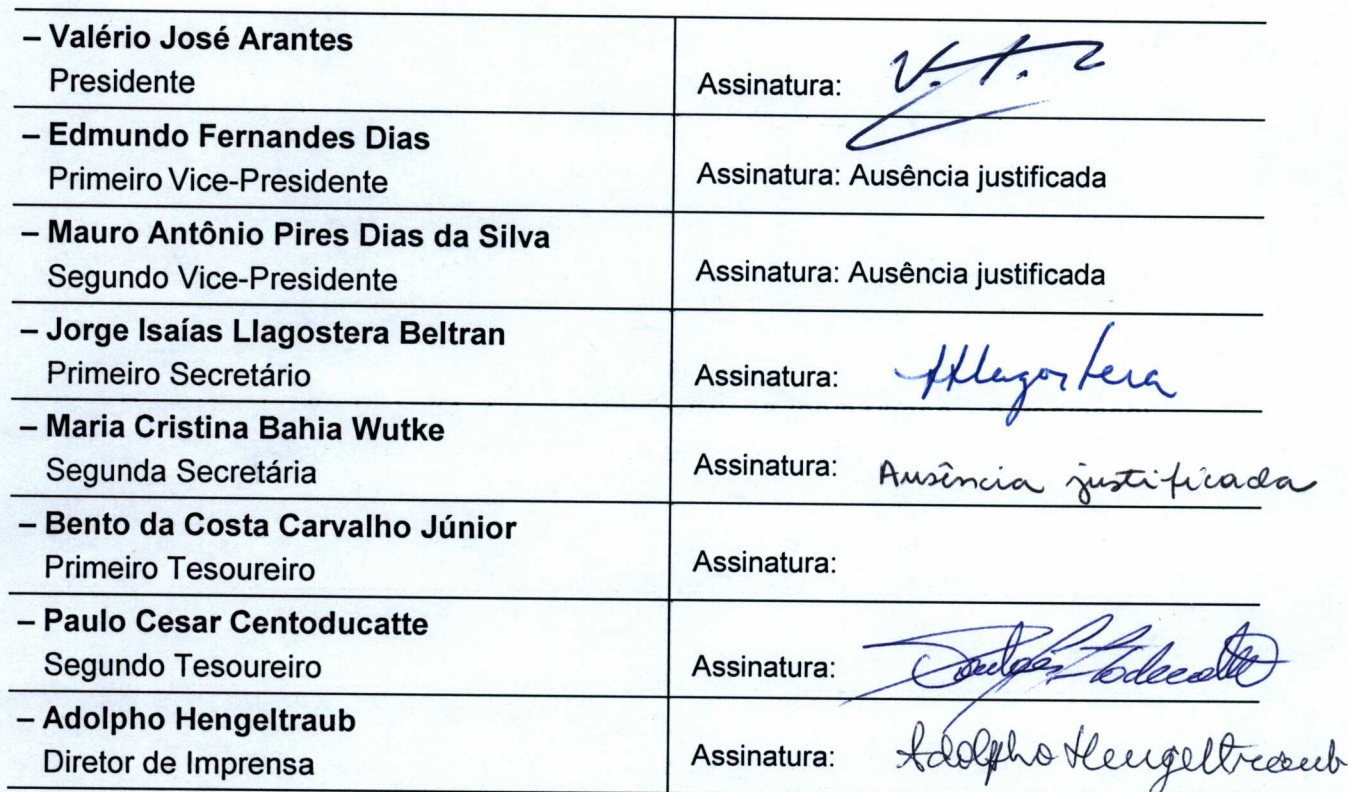 – Valério José Arantes
Presidente
Assinatura: V.A.
– Edmundo Fernandes Dias
Primeiro Vice-Presidente
Assinatura: Ausência justificada
– Mauro Antônio Pires Dias da Silva
Segundo Vice-Presidente
Assinatura: Ausência justificada
– Jorge Isaías Llagostera Beltran
Primeiro Secretário
Assinatura: Llagostera
– Maria Cristina Bahia Wutke
Segunda Secretária
Assinatura: Ausência justificada
– Bento da Costa Carvalho Júnior
Primeiro Tesoureiro
Assinatura:
– Paulo Cesar Centoducatte
Segundo Tesoureiro
Assinatura:
– Adolpho Hengeltraub
Diretor de Imprensa
Assinatura: Adolpho Hengeltraub